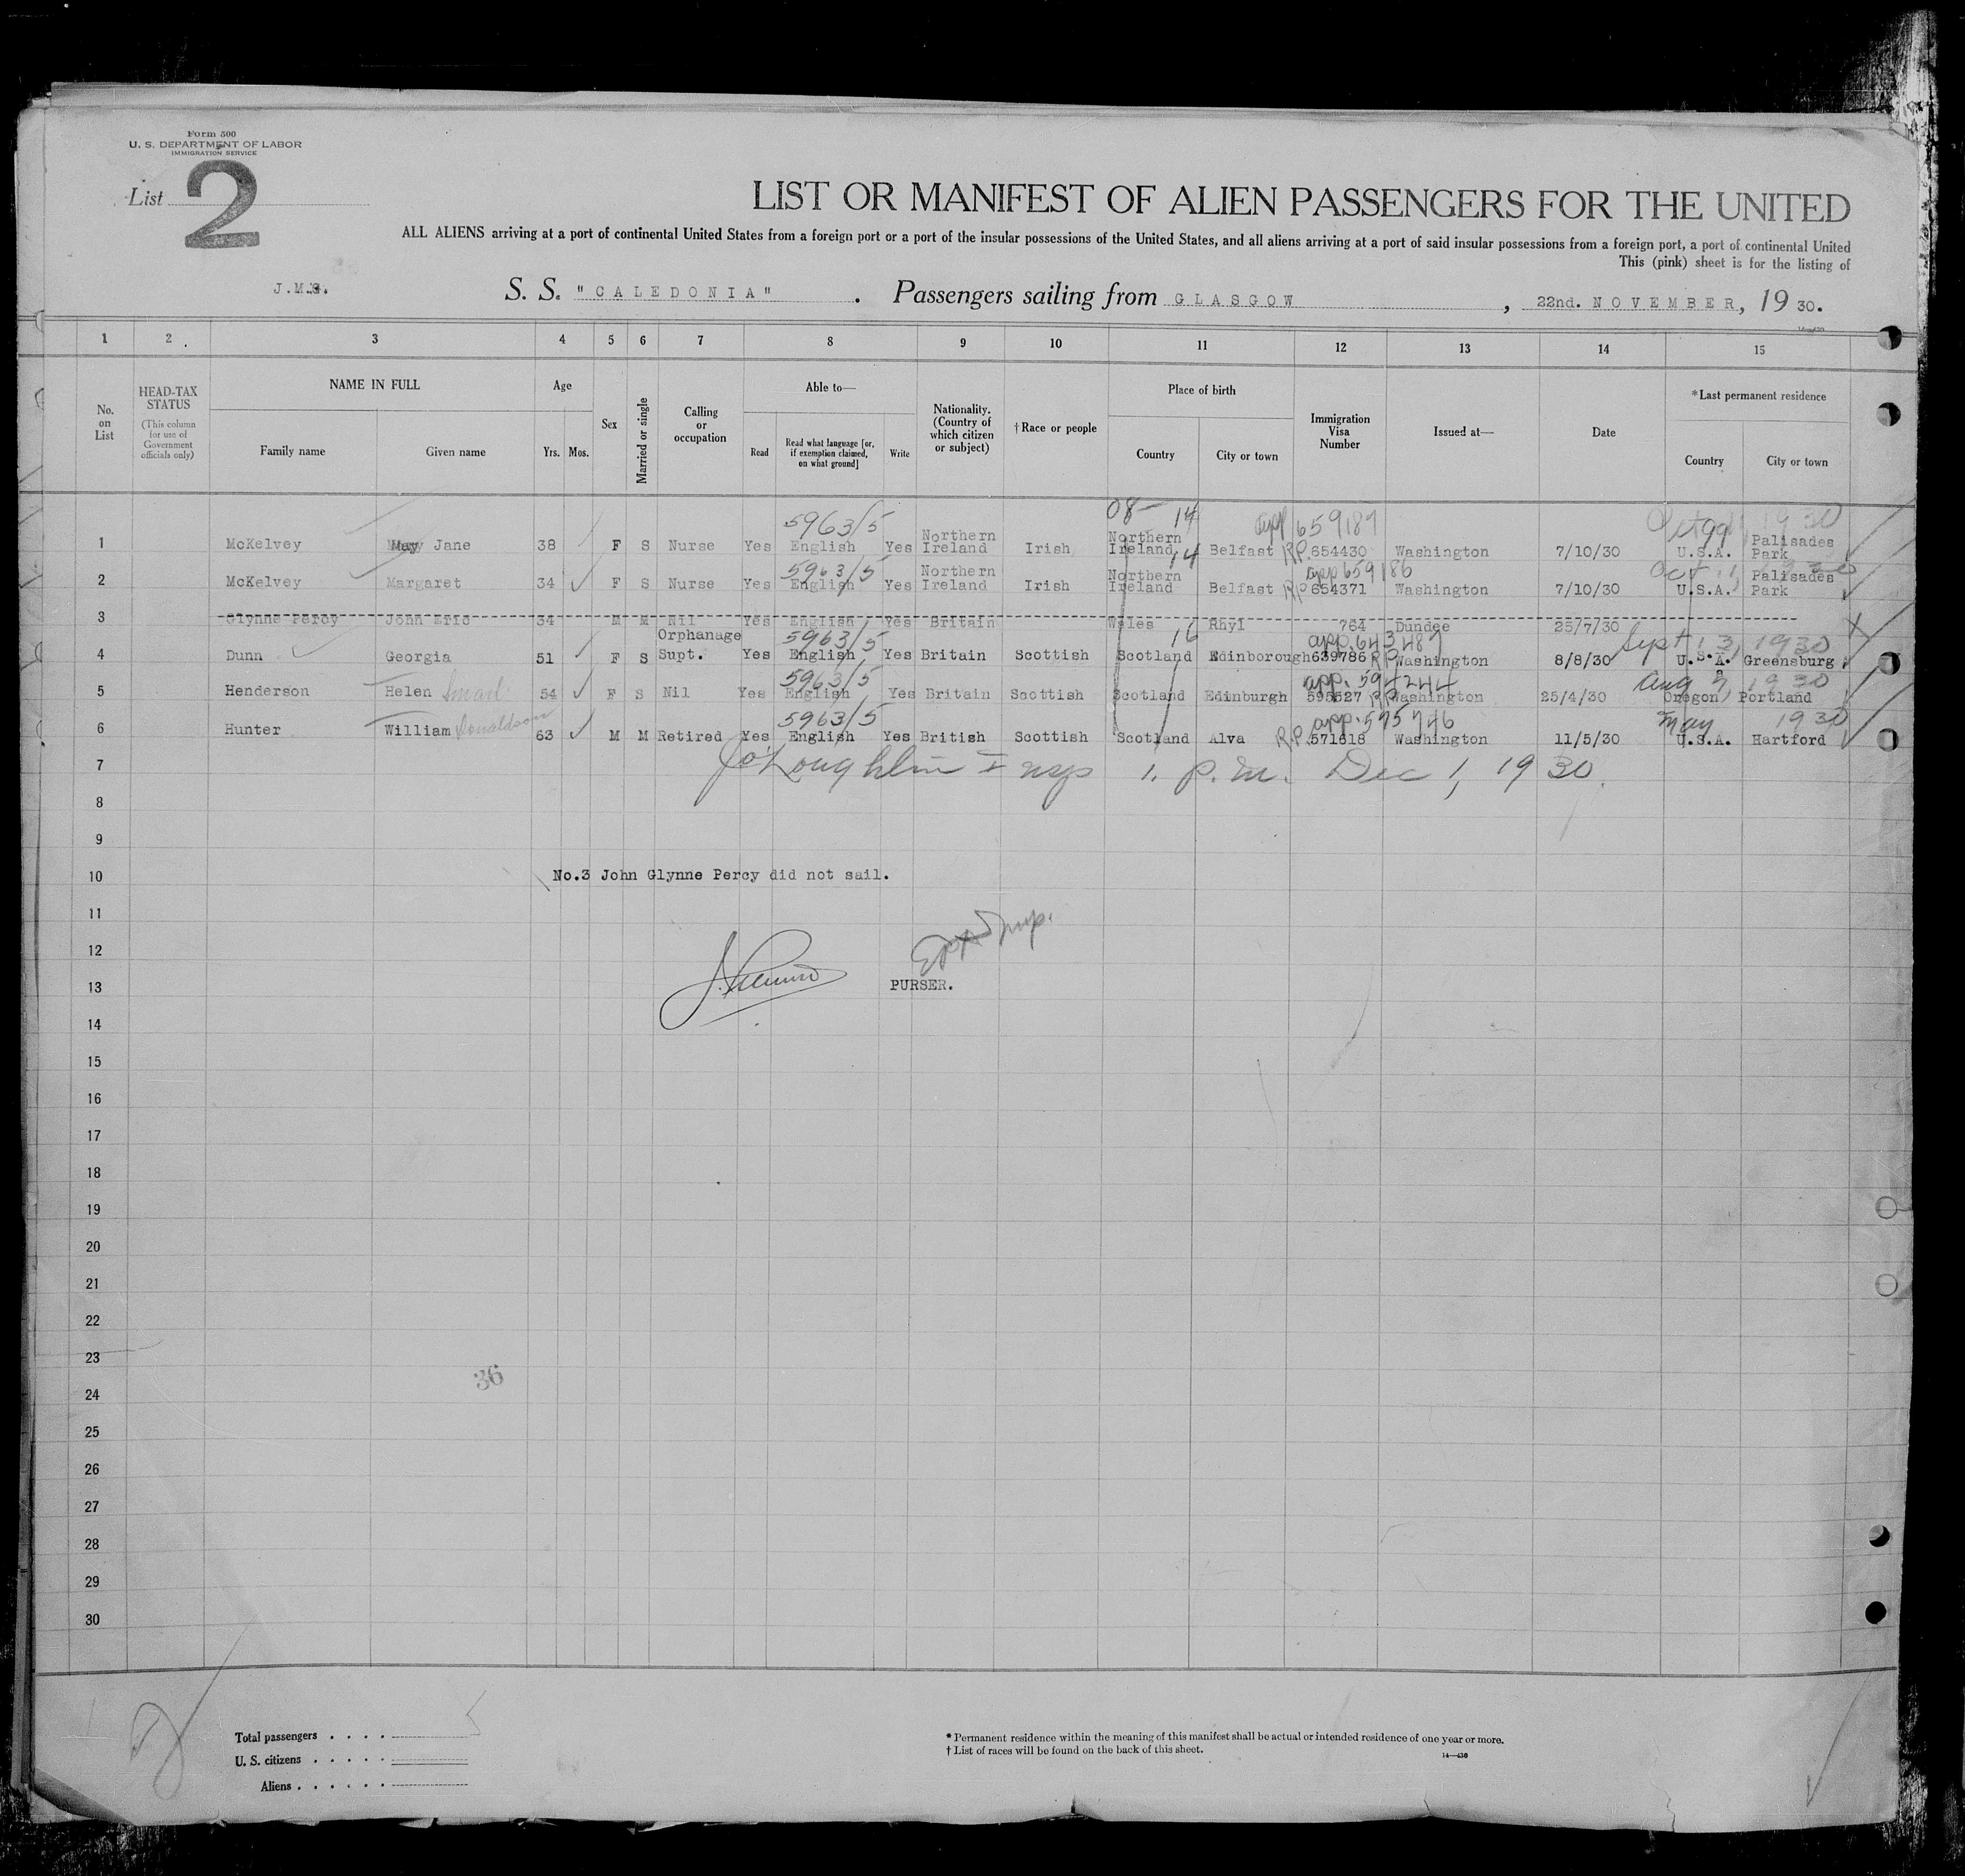 Form 500
U. S. DEPARTMENT OF LABOR
IMMIGRATION SERVICE
List 2
LIST OR MANIFEST OF ALIEN PASSENGERS FOR THE UNITED
ALL ALIENS arriving at a port of continental United States from a foreign port or a port of the insular possessions of the United States, and all aliens arriving at a port of said insular possessions from a foreign port, a port of continental United
This (pink) sheet is for the listing of
S. S. "CALEDONIA". Passengers sailing from GLASGOW, 22nd. NOVEMBER, 1930.
1 2 3 4 5 6 7 8 9 10 11 12 13 14 15
No. on List
HEAD-TAX STATUS
(This column for use of Government officials only)
NAME IN FULL
Family name
Given name
Age
Yrs. Mos.
Sex
Married or single
Calling or occupation
Able to—
Read
Read what language [or, if exemption claimed, on what ground]
Write
Nationality. (Country of which citizen or subject)
†Race or people
Place of birth
Country
City or town
Immigration Visa Number
Issued at—
Date
*Last permanent residence
Country
City or town
5963/5 08- 14 app 659187 1930
1 McKelvey May Jane 38 F S Nurse Yes English Yes Northern Ireland Irish Northern Ireland Belfast R.P. 654430 Washington 7/10/30 U.S.A. Palisades Park
5963/5 14 app 659186 Oct 11, 1930
2 McKelvey Margaret 34 F S Nurse Yes English Yes Northern Ireland Irish Northern Ireland Belfast RP 654371 Washington 7/10/30 U.S.A. Palisades Park
3 Glynne Percy John Eric 34 M M Nil Yes English Yes Britain Wales Rhyl 764 Dundee 25/7/30 X
5963/5 16 app. 643487 Sept 13, 1930
4 Dunn Georgia 51 F S Orphanage Supt. Yes English Yes Britain Scottish Scotland Edinborough 639786 RP Washington 8/8/30 U.S.A. Greensburg
5963/5 app. 594244 Aug 7, 1930
5 Henderson Helen Smail 54 F S Nil Yes English Yes Britain Scottish Scotland Edinburgh 595527 RP Washington 25/4/30 Oregon Portland
5963/5 app. 575746 May 1930
6 Hunter William Donaldson 63 M M Retired Yes English Yes British Scottish Scotland Alva R.P. 571618 Washington 11/5/30 U.S.A. Hartford
7 J O'Loughlin I nsp 1. p.m. Dec 1, 1930.
8
9
10 No.3 John Glynne Percy did not sail.
11
12
13 PURSER.
14
15
16
17
18
19
20
21
22
23
36
24
25
26
27
28
29
30
2
Total passengers 5
U. S. citizens
Aliens
* Permanent residence within the meaning of this manifest shall be actual or intended residence of one year or more.
† List of races will be found on the back of this sheet.
14—430